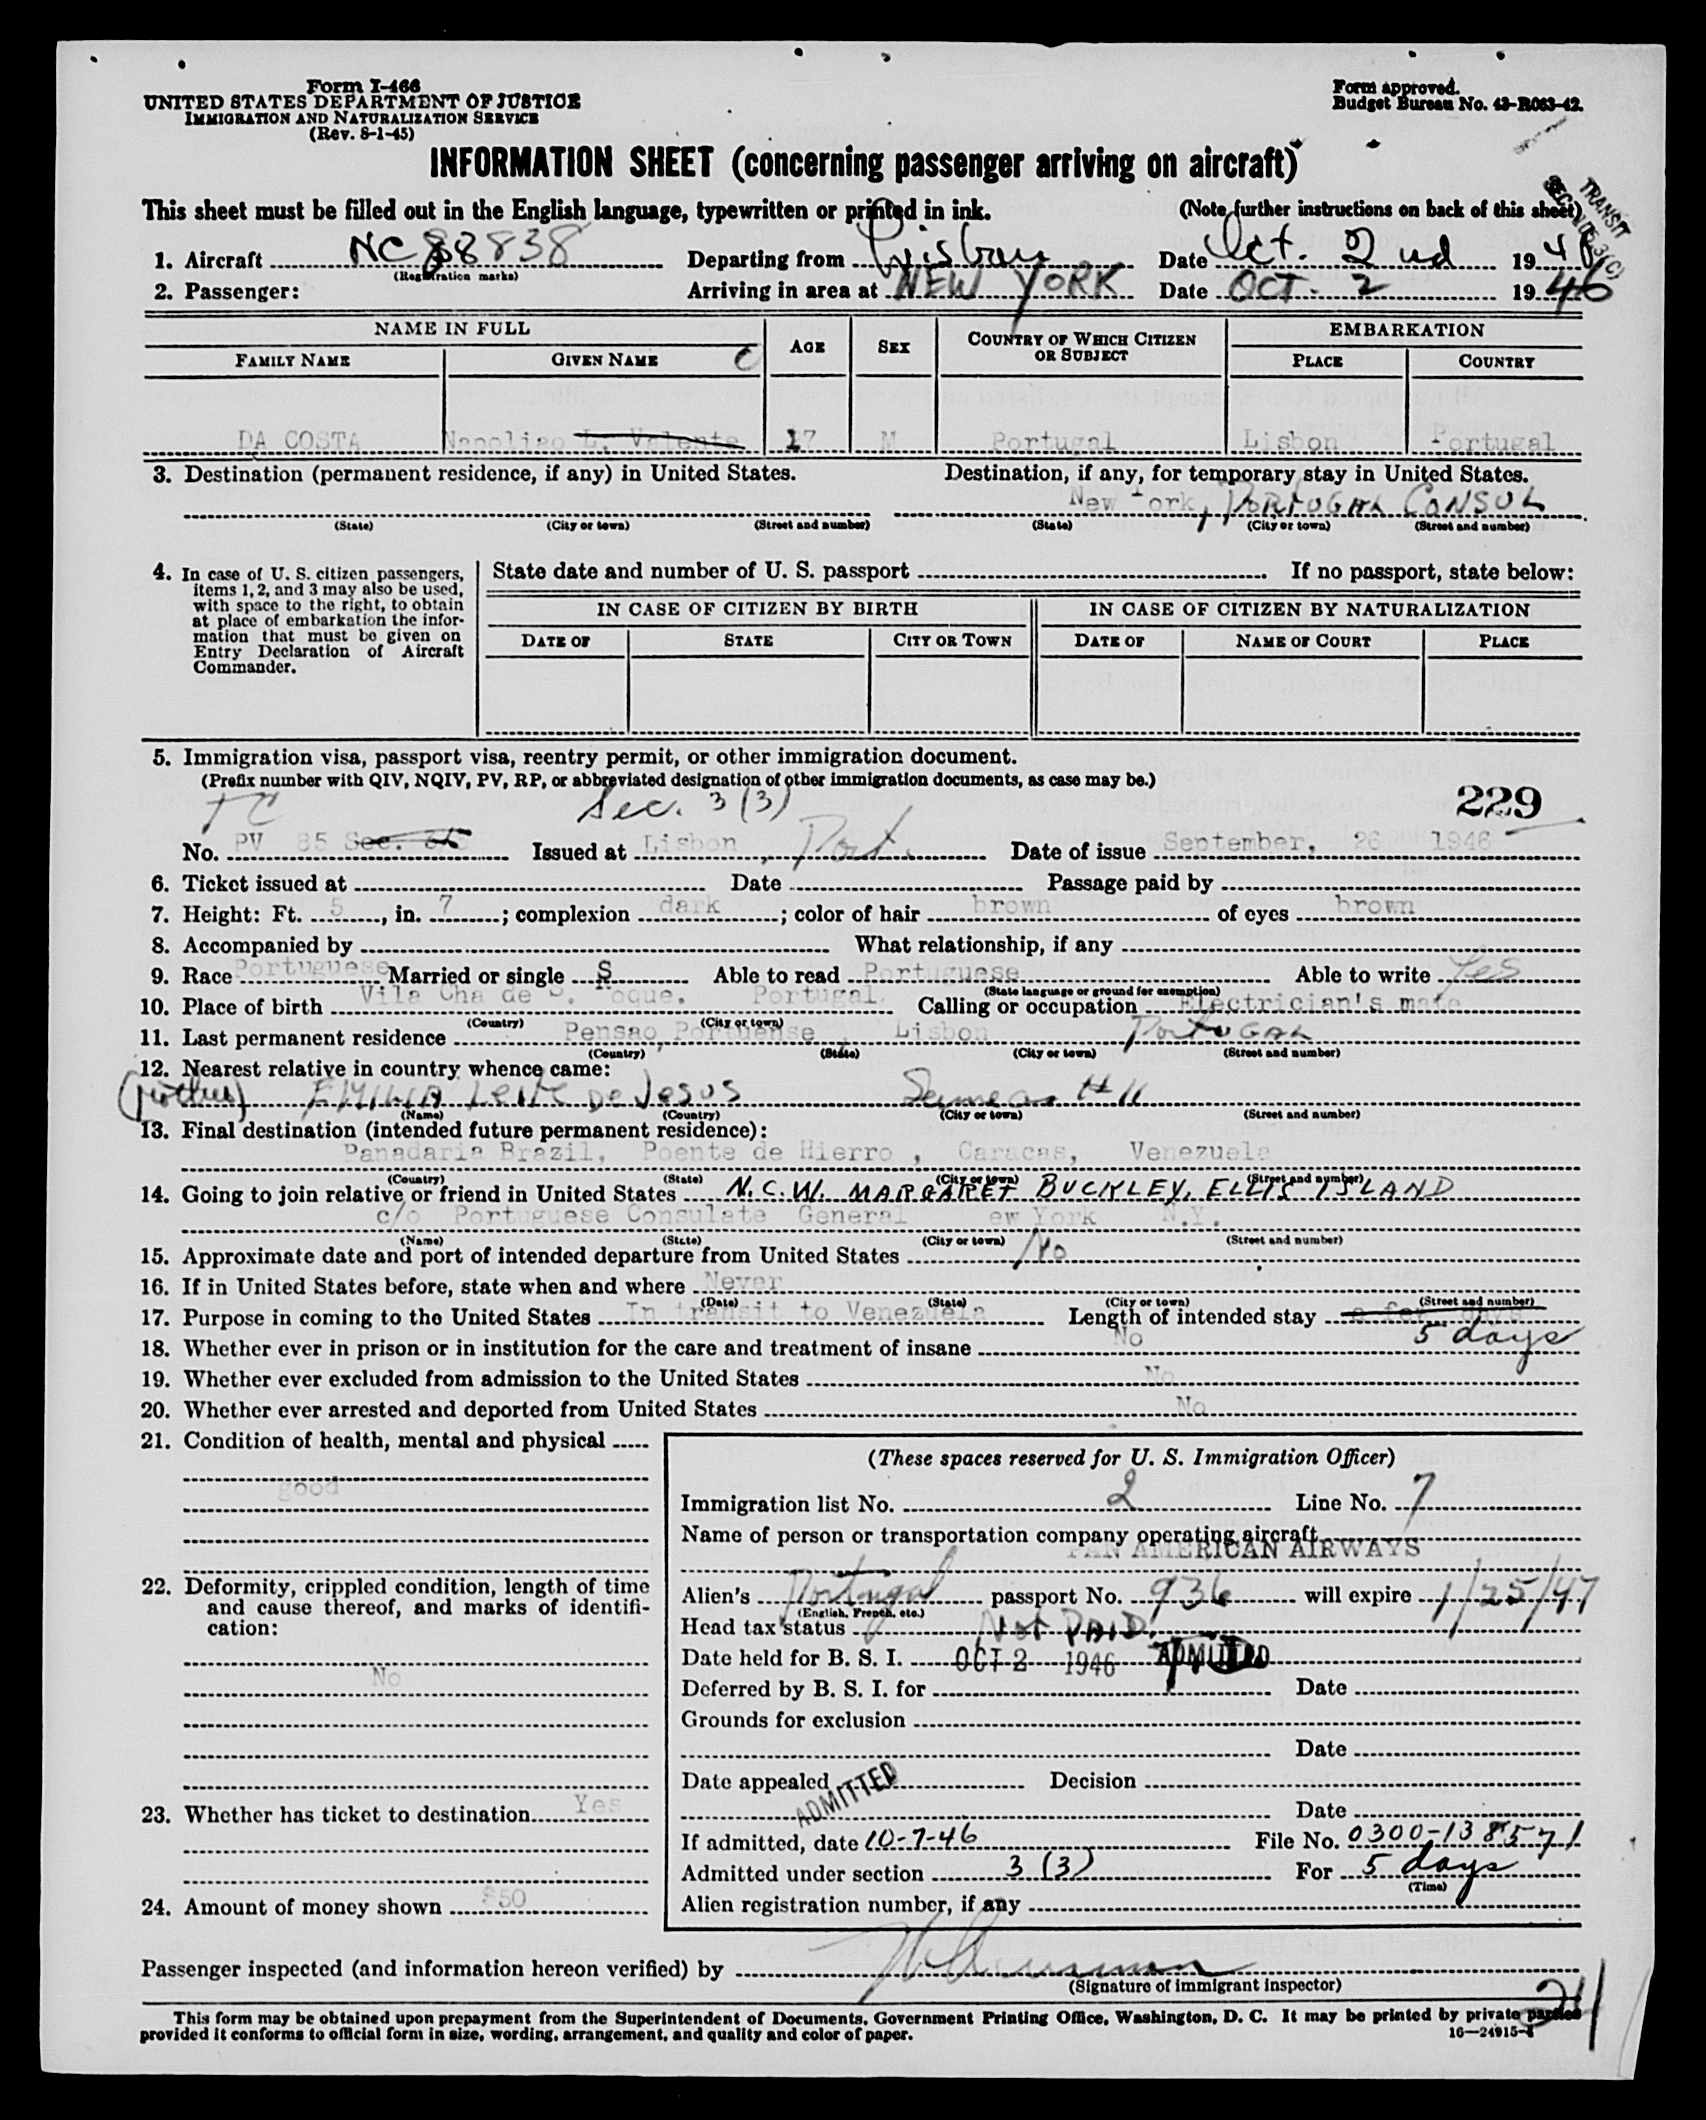 Form I-466
UNITED STATES DEPARTMENT OF JUSTICE
IMMIGRATION AND NATURALIZATION SERVICE
(Rev. 8-1-45)
Form approved.
Budget Bureau No. 43-R063-42.
INFORMATION SHEET (concerning passenger arriving on aircraft)
TRANSIT
This sheet must be filled out in the English language, typewritten or printed in ink. (Note further instructions on back of this sheet)
1. Aircraft NC 88838 Departing from Lisbon Date Oct. 2nd 1946
(Registration marks)
2. Passenger: Arriving in area at NEW YORK Date OCT. 2 1946
NAME IN FULL AGE SEX COUNTRY OF WHICH CITIZEN OR SUBJECT EMBARKATION
FAMILY NAME GIVEN NAME PLACE COUNTRY
DA COSTA Napoliao L. Valente 17 M Portugal Lisbon Portugal
3. Destination (permanent residence, if any) in United States. Destination, if any, for temporary stay in United States.
New York, PORTUGAL CONSUL
(State) (City or town) (Street and number) (State) (City or town) (Street and number)
4. In case of U. S. citizen passengers, items 1, 2, and 3 may also be used, with space to the right, to obtain at place of embarkation the information that must be given on Entry Declaration of Aircraft Commander.
State date and number of U. S. passport If no passport, state below:
IN CASE OF CITIZEN BY BIRTH IN CASE OF CITIZEN BY NATURALIZATION
DATE OF STATE CITY OR TOWN DATE OF NAME OF COURT PLACE
5. Immigration visa, passport visa, reentry permit, or other immigration document.
(Prefix number with QIV, NQIV, PV, RP, or abbreviated designation of other immigration documents, as case may be.)
TC Sec. 3 (3) 229
No. PV 85 Issued at Lisbon, Port. Date of issue September, 26 1946
6. Ticket issued at Date Passage paid by
7. Height: Ft. 5, in. 7; complexion dark; color of hair brown of eyes brown
8. Accompanied by What relationship, if any
9. Race Portuguese Married or single S Able to read Portuguese Able to write Yes
(State language or ground for exemption)
10. Place of birth Vila Cha de S. Roque. Portugal Calling or occupation Electrician's mate
(Country) (City or town)
11. Last permanent residence Pensao Portuense, Lisbon PORTUGAL
(Country) (State) (City or town) (Street and number)
12. Nearest relative in country whence came:
(mother) EMILIA Leite De Jesus Same as #11
(Name) (Country) (City or town) (Street and number)
13. Final destination (intended future permanent residence):
Panadaria Brazil, Poente de Hierro, Caracas, Venezuela
(Country) (State) (City or town) (Street and number)
14. Going to join relative or friend in United States N.C.W. MARGARET BUCKLEY, ELLIS ISLAND
c/o Portuguese Consulate General New York N.Y.
(Name) (State) (City or town) (Street and number)
15. Approximate date and port of intended departure from United States No
16. If in United States before, state when and where Never
(Date) (State) (City or town) (Street and number)
17. Purpose in coming to the United States In transit to Venezuela Length of intended stay a few days
5 days
18. Whether ever in prison or in institution for the care and treatment of insane No
19. Whether ever excluded from admission to the United States No
20. Whether ever arrested and deported from United States No
21. Condition of health, mental and physical
good
22. Deformity, crippled condition, length of time and cause thereof, and marks of identification:
No
23. Whether has ticket to destination Yes
24. Amount of money shown $50
(These spaces reserved for U. S. Immigration Officer)
Immigration list No. 2 Line No. 7
Name of person or transportation company operating aircraft
PAN AMERICAN AIRWAYS
Alien's Portugal passport No. 936 will expire 1/25/47
(English, French, etc.)
Head tax status Not PAID.
Date held for B. S. I. OCT 2 1946 ADMITTED
Deferred by B. S. I. for Date
Grounds for exclusion
Date
Date appealed Decision
ADMITTED
Date
If admitted, date 10-7-46 File No. 0300-138571
Admitted under section 3 (3) For 5 days
(Time)
Alien registration number, if any
Passenger inspected (and information hereon verified) by
(Signature of immigrant inspector)
This form may be obtained upon prepayment from the Superintendent of Documents, Government Printing Office, Washington, D. C. It may be printed by private parties
provided it conforms to official form in size, wording, arrangement, and quality and color of paper. 16—24915-1
24